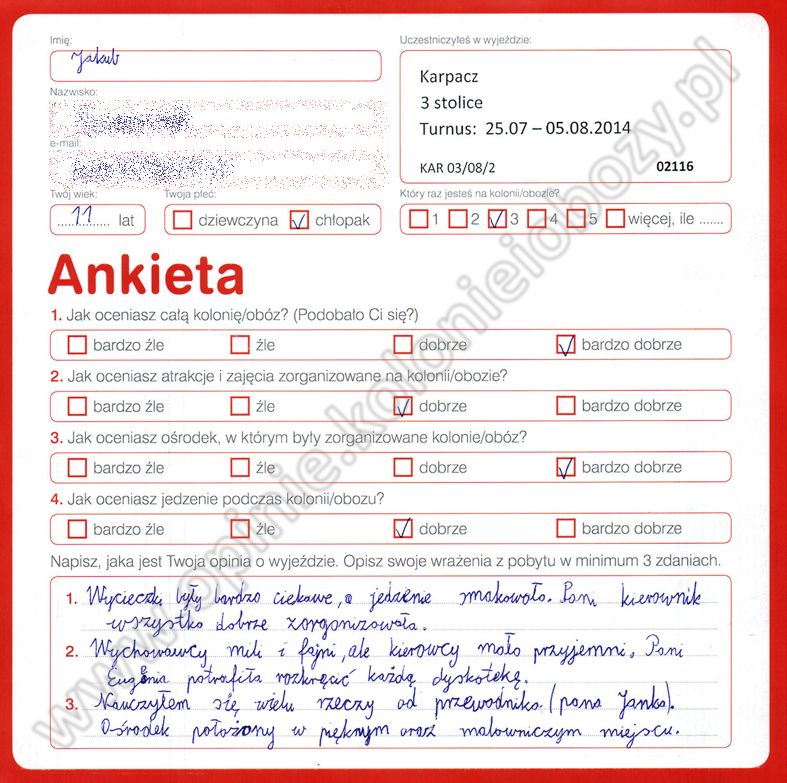 Imię:
Uczestniczyłeś w wyjeździe:
Jakub
Karpacz
3 stolice
Turnus: 25.07 – 05.08.2014
KAR 03/08/2 02116
Nazwisko:
e-mail:
Twój wiek:
Twoja płeć:
Który raz jesteś na kolonii/obozie?
11 lat
dziewczyna chłopak
1 2 3 4 5 więcej, ile .......
Ankieta
1. Jak oceniasz całą kolonię/obóz? (Podobało Ci się?)
bardzo źle źle dobrze bardzo dobrze
2. Jak oceniasz atrakcje i zajęcia zorganizowane na kolonii/obozie?
bardzo źle źle dobrze bardzo dobrze
3. Jak oceniasz ośrodek, w którym były zorganizowane kolonie/obóz?
bardzo źle źle dobrze bardzo dobrze
4. Jak oceniasz jedzenie podczas kolonii/obozu?
bardzo źle źle dobrze bardzo dobrze
Napisz, jaka jest Twoja opinia o wyjeździe. Opisz swoje wrażenia z pobytu w minimum 3 zdaniach.
1. Wycieczki były bardzo ciekawe, a jedzenie smakowało. Pani kierownik
wszystko dobrze zorganizowała.
2. Wychowawcy mili i fajni, ale kierowcy mało przyjemni. Pani
Eugenia potrafiła rozkręcić każdą dyskotekę.
3. Nauczyłem się wielu rzeczy od przewodnika (pana Janka).
Ośrodek położony w pięknym oraz malowniczym miejscu.
www.opinie.kolonieiobozy.pl